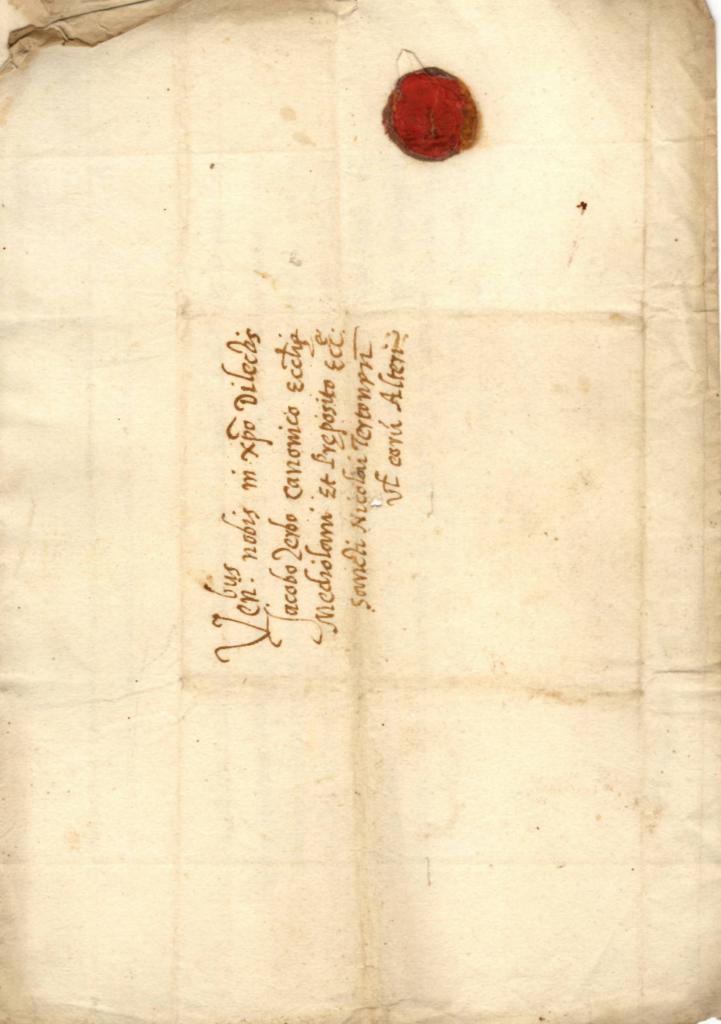 Ven.bus nobis in xpo Dilectis
Jacobo Zerbo Canonico Ecclie
Mediolani Et Preposito Ecc.e
Sancti Nicolai Tertonen
Vt eorū Alteri